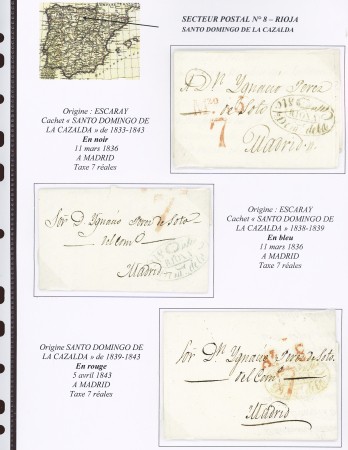 SECTEUR POSTAL N° 8 – RIOJA
SANTO DOMINGO DE LA CAZALDA
Origine : ESCARAY
Cachet « SANTO DOMINGO DE
LA CAZALDA » de 1833-1843
En noir
11 mars 1836
A MADRID
Taxe 7 réales
A D. Ygnacio Perez
de Soto
7
RIOJA
Madrid
Origine : ESCARAY
Cachet « SANTO DOMINGO DE
LA CAZALDA » 1838-1839
En bleu
11 mars 1836
A MADRID
Taxe 7 réales
7
Sor D. Ygnacio Perez de Soto
del Como
Madrid
Origine SANTO DOMINGO DE
LA CAZALDA » de 1839-1843
En rouge
5 avril 1843
A MADRID
Taxe 7 réales
Sor Dn Ygnacio Perez de Soto
del Como
Madrid